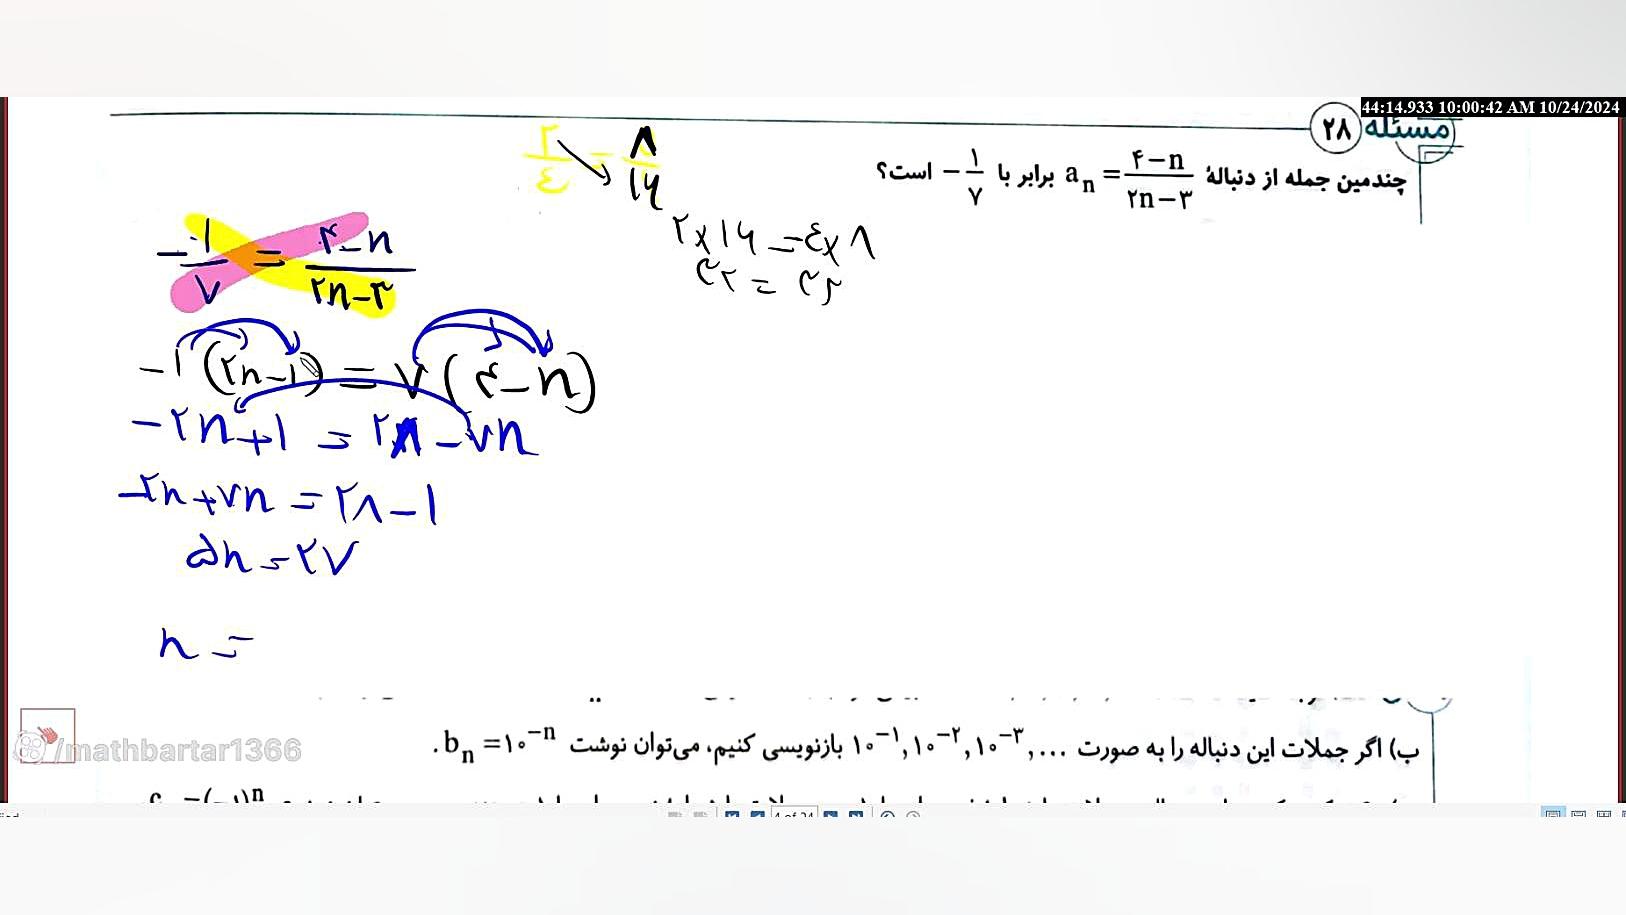 44:14.933 10:00:42 AM 10/24/2024
مسئله ۲۸
چندمین جمله از دنبالهٔ a_n = (۴-n)/(۲n-۳) برابر با -۱/۷ است؟
۲/٤ = ۸/۱۶
۲×۱۶ = ٤×۸
۳۲ = ۳۲
-۱/۷ = (۴-n)/(۲n-۳)
-۱(۲n-۱) = ۷(۴-n)
-۲n+۱ = ۲۸-۷n
-۲n+۷n = ۲۸-۱
۵n = ۲۷
n =
ب) اگر جملات این دنباله را به صورت ...,۱۰^-۱,۱۰^-۲,۱۰^-۳ بازنویسی کنیم، می‌توان نوشت b_n = ۱۰^-n.
/mathbartar1366
4 of 24